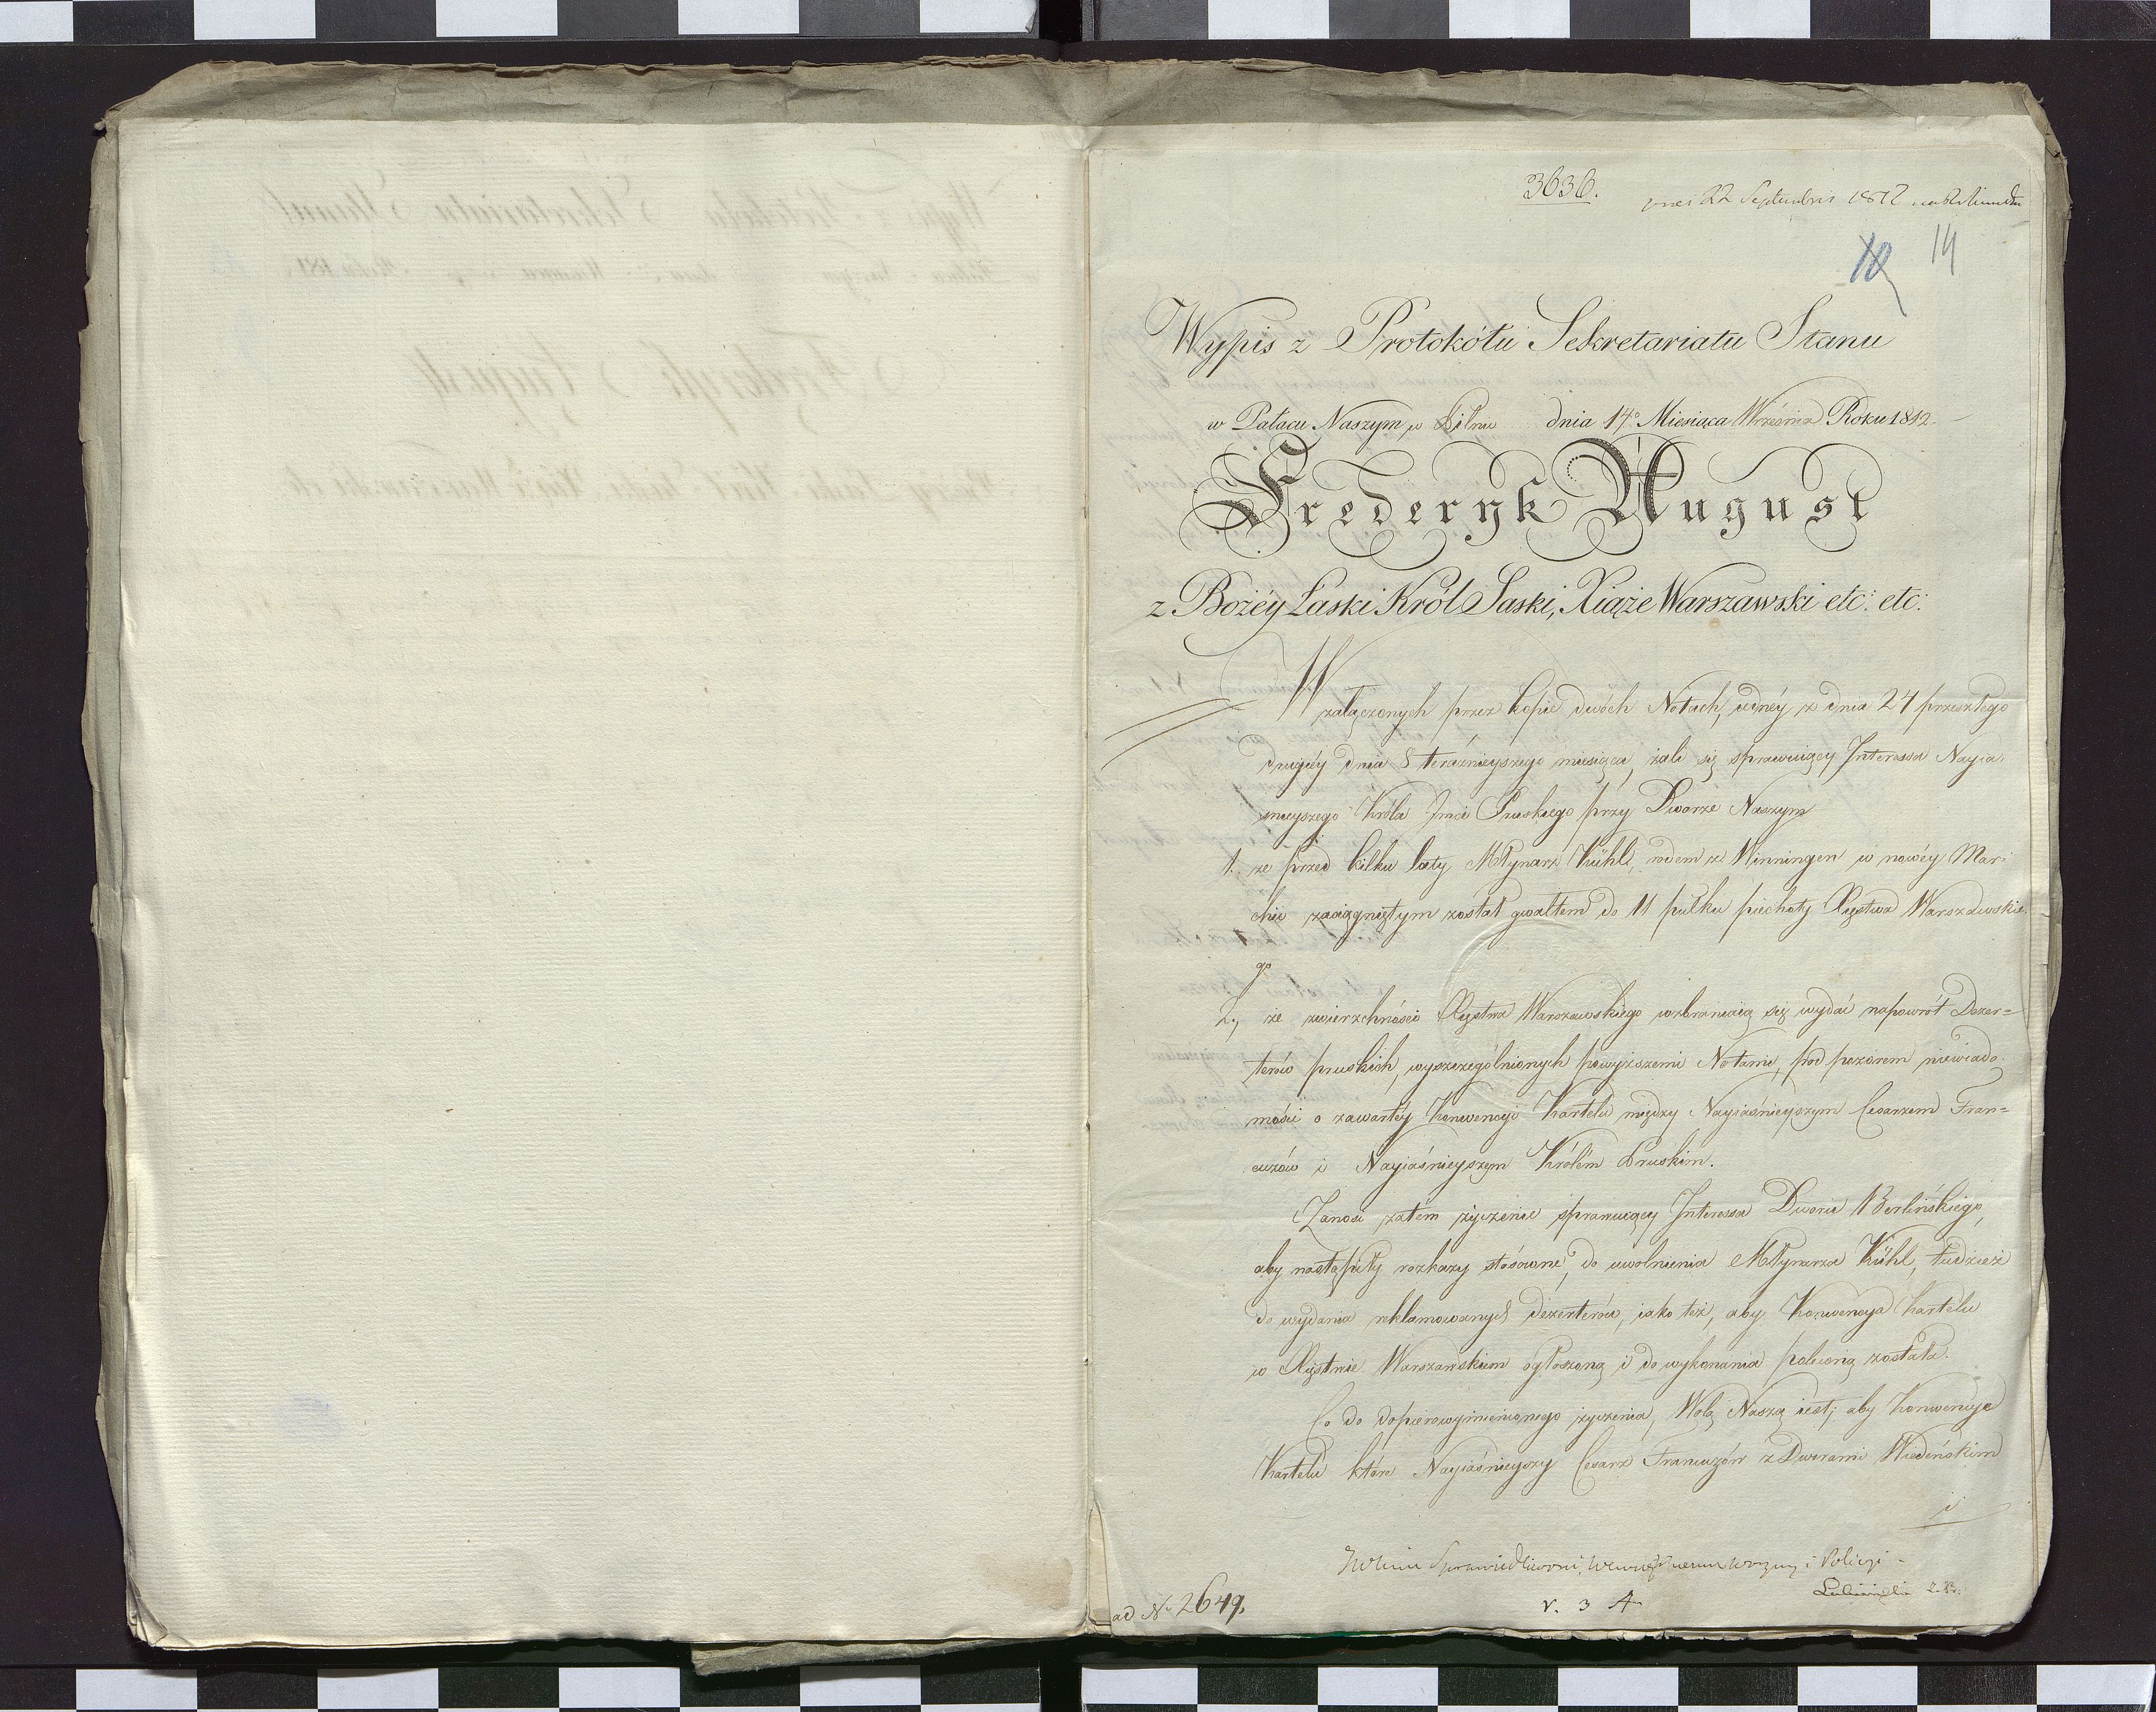 3636.
22 Septembris 1812
10 14
Wypis z Protokółu Sekretariatu Stanu
w Pałacu Naszym w Pilniu dnia 14º Miesiąca Września Roku 1812.
Frederyk August
z Bożéy Łaski Król Saski, Xiąże Warszawski etc: etc:
W załączonych przez kopie dwóch Notach, iednéy z dnia 24 przeszłego
drugiéy dnia 8 teraźnieyszego miesiąca, żali się sprawuiący Interessa Nayia-
śnieyszego Króla Jmci Pruskiego przy Dworze Naszym
1. że przed kilku laty Młynarz Kühl, rodem z Winningen w nowéy Mar-
chii zaciągniętym został gwałtem do 11 pułku piechoty Xięstwa Warszawskie-
go
2., że zwierzchności Xięstwa Warszawskiego wzbraniaią się wydać napowrót Dezer=
terów pruskich, wyszczególnionych powyższemi Notami, pod pozorem niewiado-
mości o zawartéy Konwencyi Kartelu między Nayiaśnieyszym Cesarzem Fran=
cuzów i Nayiaśnieyszym Królem Pruskim.
Zanosi zatém życzenie sprawuiący Interessa Dworu Berlińskiego,
aby nastąpiły rozkazy stósowne, do uwolnienia Młynarza Kühl, tudzież
do wydania reklamowanych dezerterów, iako też, aby Konwencya kartelu
w Xięstwie Warszawskiem ogłoszoną i do wykonania poleconą została.
Co do dopierowymienionego życzenia, Wolą Naszą iest, aby Konwencye
Kartelu które Nayiaśnieyszy Cesarz Francuzów z Dworami Wiedeńskim
i
Sprawiedliwości, i Policyi
Lubieński
ad Nº 2649.
v. 3 A